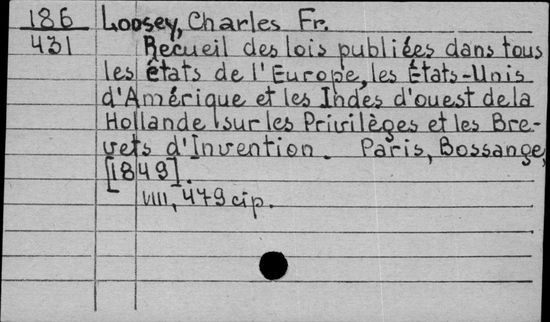 186 Loosey, Charles Fr.
431 Recueil des lois publiées dans tous
les états de l'Europe, les États-Unis
d'Amérique et les Indes d'ouest de la
Hollande sur les Privilèges et les Bre-
vets d'Invention. Paris, Bossange,
[1849].
VIII, 479 cip.